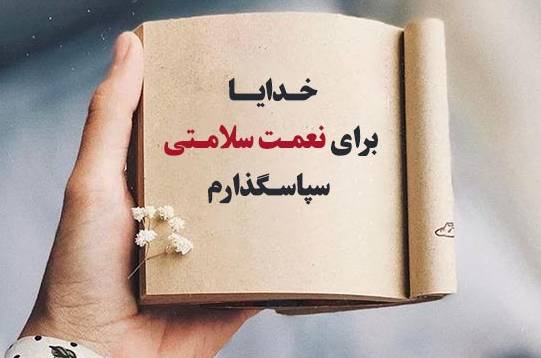 خدایا
برای نعمت سلامتی
سپاسگذارم